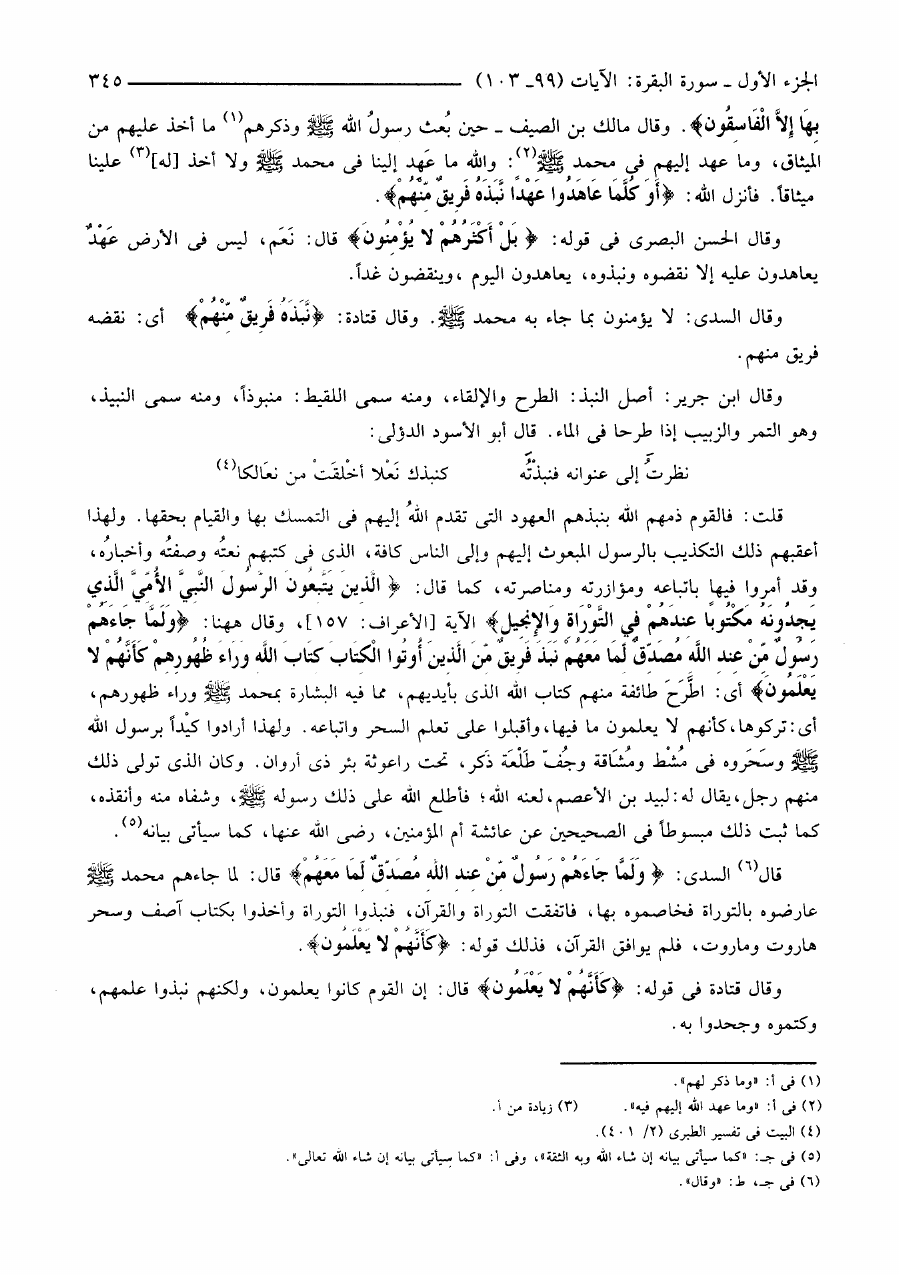 الجزء الأول ـ سورة البقرة: الآيات (٩٩ـ ١٠٣) ٣٤٥
بِهَا إِلاَّ الْفَاسِقُونَ﴾. وقال مالك بن الصيف ـ حين بُعث رسولُ الله ﷺ وذكرهم(١) ما أخذ عليهم من
الميثاق، وما عهد إليهم فى محمد ﷺ(٢): والله ما عَهِد إلينا فى محمد ﷺ ولا أخذ [له](٣) علينا
ميثاقاً. فأنزل الله: ﴿أَوَ كُلَّمَا عَاهَدُوا عَهْدًا نَّبَذَهُ فَرِيقٌ مِّنْهُمْ﴾.
وقال الحسن البصرى فى قوله: ﴿ بَلْ أَكْثَرُهُمْ لا يُؤْمِنُونَ﴾ قال: نَعَم، ليس فى الأرض عَهْدٌ
يعاهدون عليه إلا نقضوه ونبذوه، يعاهدون اليوم ،وينقضون غداً.
وقال السدى: لا يؤمنون بما جاء به محمد ﷺ. وقال قتادة: ﴿نَّبَذَهُ فَرِيقٌ مِّنْهُمْ﴾ أى: نقضه
فريق منهم.
وقال ابن جرير: أصل النبذ: الطرح والإلقاء، ومنه سمى اللقيط: منبوذاً، ومنه سمى النبيذ،
وهو التمر والزبيب إذا طرحا فى الماء. قال أبو الأسود الدؤلى:
نظرتُ إلى عنوانه فنبذْتُه كنبذك نَعْلا أخْلقَتْ من نعَالكا(٤)
قلت: فالقوم ذمهم الله بنبذهم العهود التى تقدم اللهُ إليهم فى التمسك بها والقيام بحقها. ولهذا
أعقبهم ذلك التكذيب بالرسول المبعوث إليهم وإلى الناس كافة، الذى فى كتبهم نعتُه وصفتُه وأخبارُه،
وقد أمروا فيها باتباعه ومؤازرته ومناصرته، كما قال: ﴿ الَّذِينَ يَتَّبِعُونَ الرَّسُولَ النَّبِيَّ الأُمِّيَّ الَّذِي
يَجِدُونَهُ مَكْتُوبًا عِندَهُمْ فِي التَّوْرَاةِ وَالإِنجِيلِ﴾ الآية [الأعراف: ١٥٧]، وقال ههنا: ﴿وَلَمَّا جَاءَهُمْ
رَسُولٌ مِّنْ عِندِ اللَّهِ مُصَدِّقٌ لِّمَا مَعَهُمْ نَبَذَ فَرِيقٌ مِّنَ الَّذِينَ أُوتُوا الْكِتَابَ كِتَابَ اللَّهِ وَرَاءَ ظُهُورِهِمْ كَأَنَّهُمْ لا
يَعْلَمُونَ﴾ أى: اطَّرَحَ طائفة منهم كتاب الله الذى بأيديهم، مما فيه البشارة بمحمد ﷺ وراء ظهورهم،
أى:تركوها،كأنهم لا يعلمون ما فيها،وأقبلوا على تعلم السحر واتباعه. ولهذا أرادوا كيْداً برسول الله
ﷺ وسَحَروه فى مُشْط ومُشَاقة وجُفّ طَلْعَة ذَكر، تحت راعوثة بئر ذى أروان. وكان الذى تولى ذلك
منهم رجل،يقال له:لبيد بن الأعصم،لعنه الله؛ فأطلع الله على ذلك رسوله ﷺ، وشفاه منه وأنقذه،
كما ثبت ذلك مبسوطاً فى الصحيحين عن عائشة أم المؤمنين، رضى الله عنها، كما سيأتى بيانه(٥).
قال(٦) السدى: ﴿ وَلَمَّا جَاءَهُمْ رَسُولٌ مِّنْ عِندِ اللَّهِ مُصَدِّقٌ لِّمَا مَعَهُمْ﴾ قال: لما جاءهم محمد ﷺ
عارضوه بالتوراة فخاصموه بها، فاتفقت التوراة والقرآن، فنبذوا التوراة وأخذوا بكتاب آصف وسحر
هاروت وماروت، فلم يوافق القرآن، فذلك قوله: ﴿كَأَنَّهُمْ لا يَعْلَمُونَ﴾.
وقال قتادة فى قوله: ﴿كَأَنَّهُمْ لا يَعْلَمُونَ﴾ قال: إن القوم كانوا يعلمون، ولكنهم نبذوا علمهم،
وكتموه وجحدوا به.
(١) فى أ: «وما ذكر لهم».
(٢) فى أ: «وما عهد الله إليهم فيه». (٣) زيادة من أ.
(٤) البيت فى تفسير الطبرى (٢/ ٤٠١).
(٥) فى جـ: «كما سيأتى بيانه إن شاء الله وبه الثقة»، وفى أ: «كما سيأتى بيانه إن شاء الله تعالى».
(٦) فى جـ، ط: «وقال».